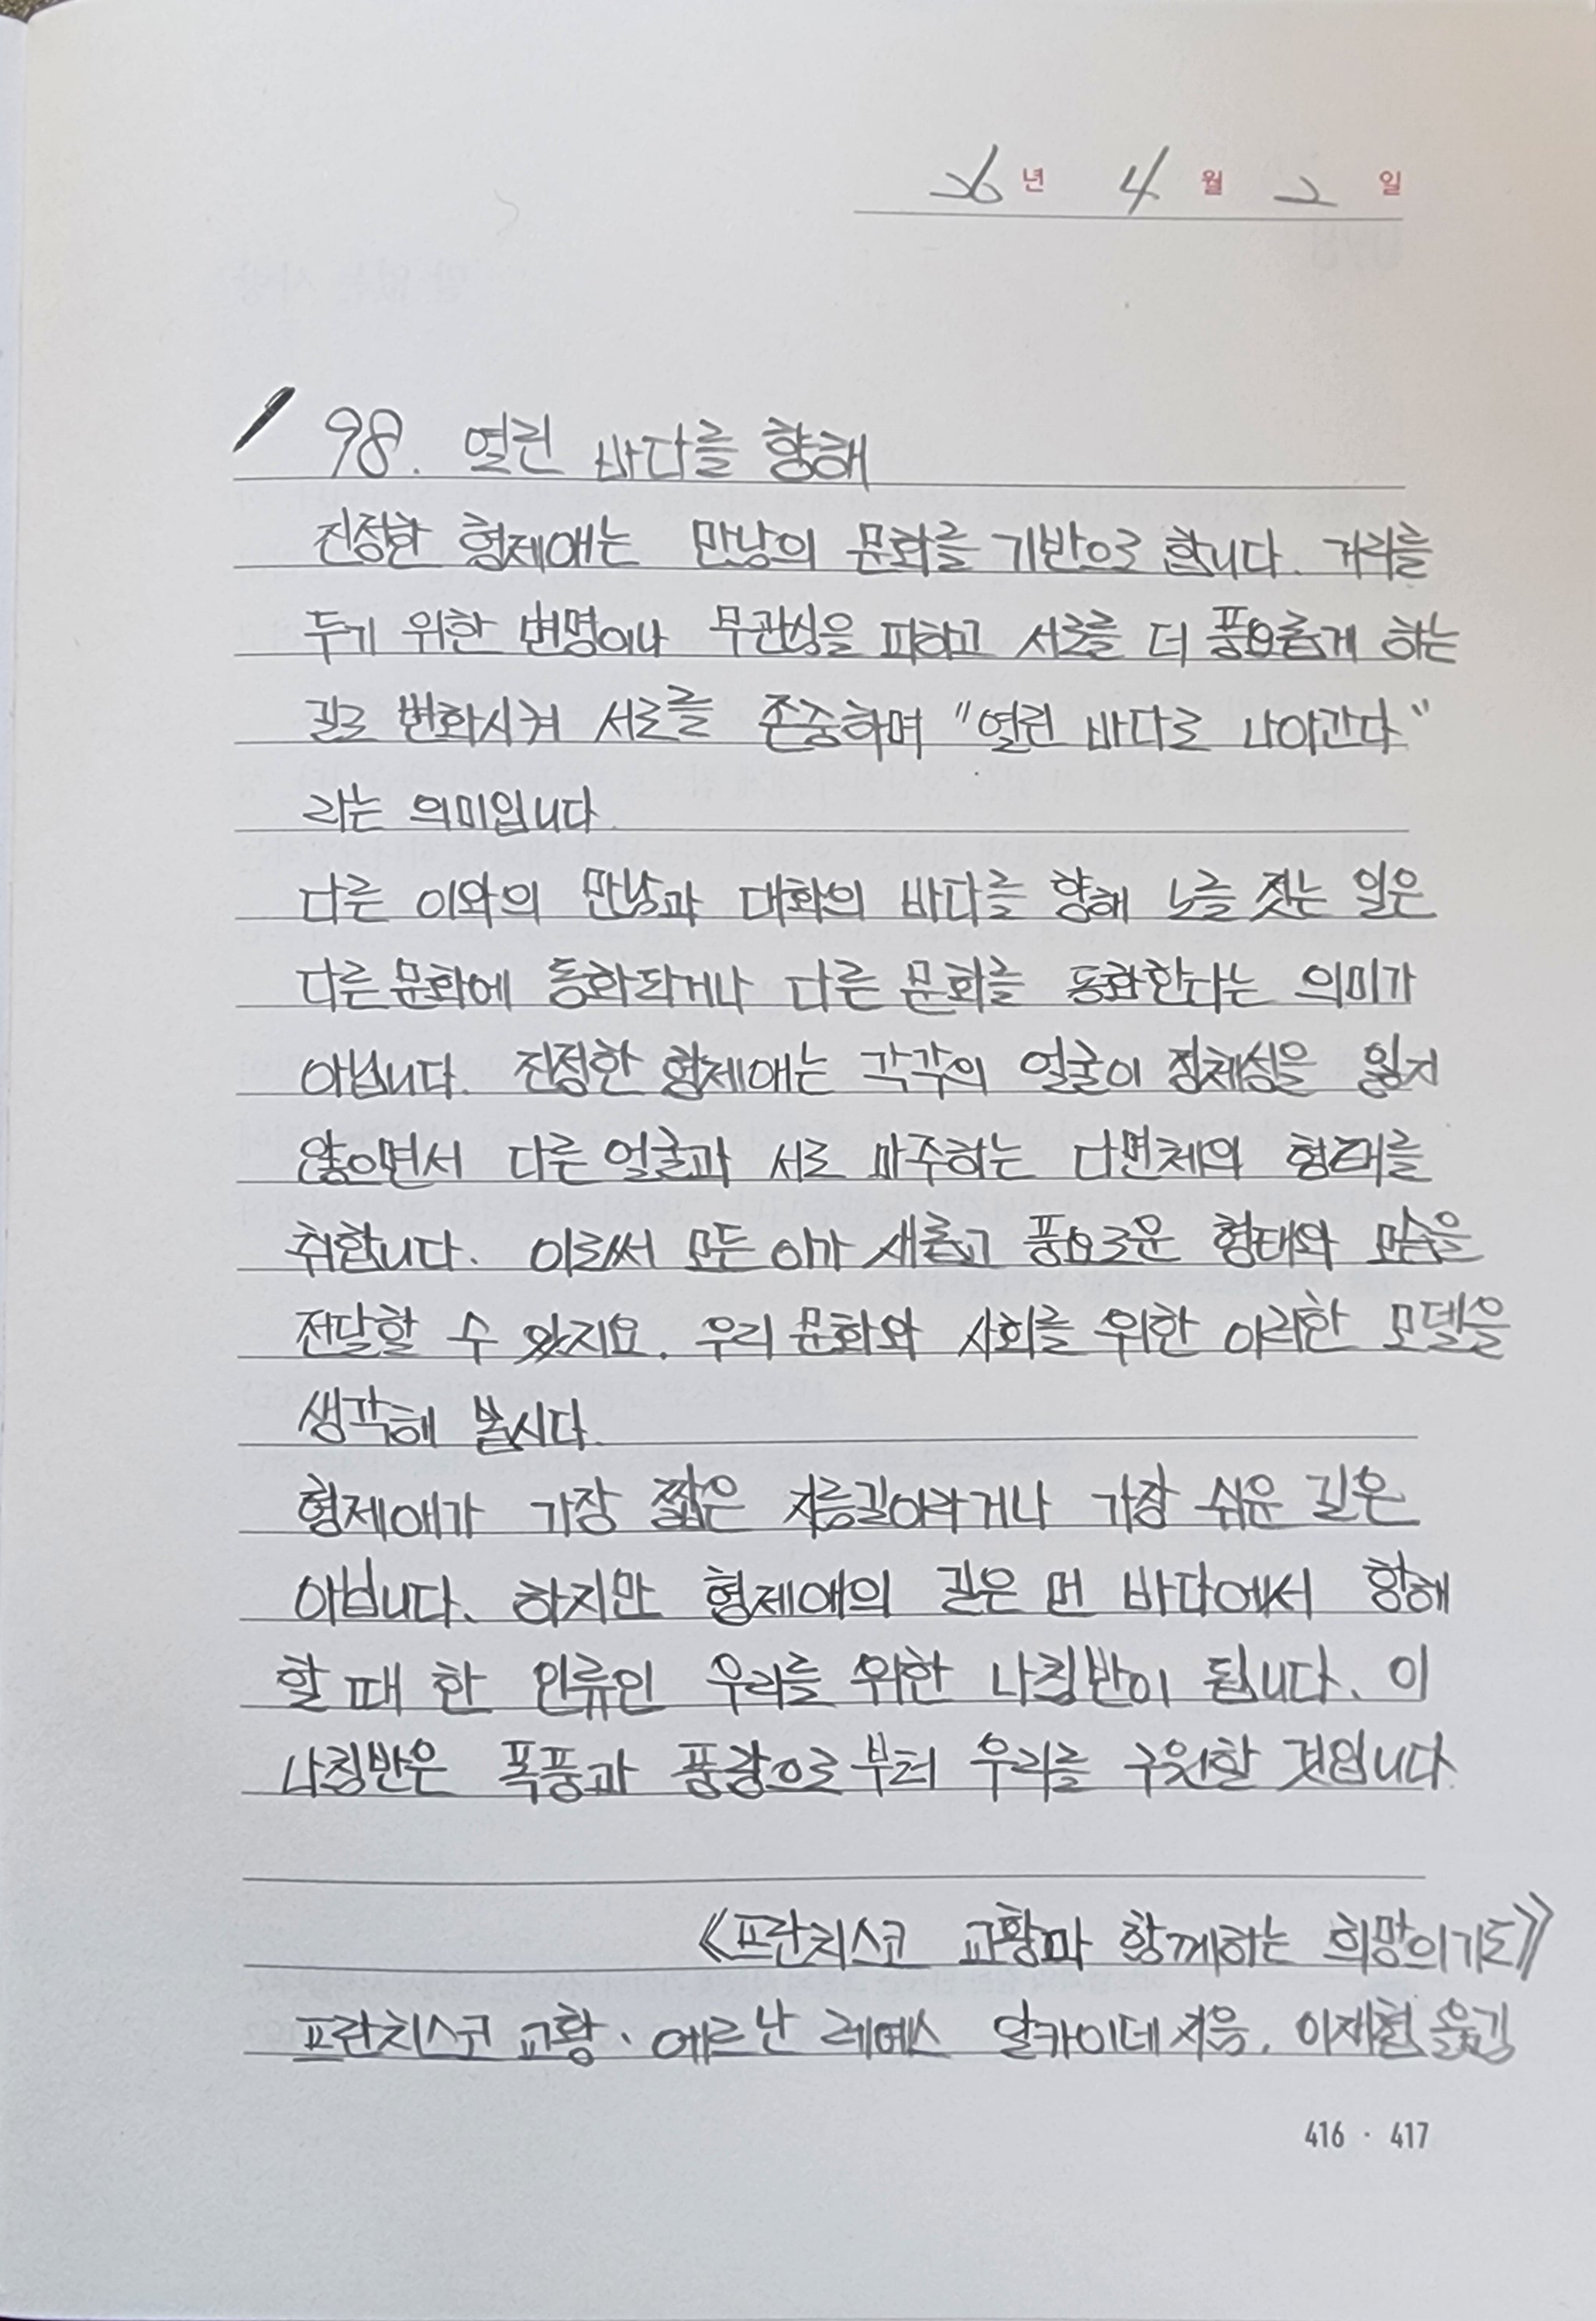 26년 4월 2일
98. 열린 바다를 향해
진정한 형제애는 만남의 문화를 기반으로 합니다. 거리를
두기 위한 변명이나 무관심을 피하고 서로를 더 풍요롭게 하는
길로 변화시켜 서로를 존중하며 "열린 바다로 나아간다"
라는 의미입니다.
다른 이와의 만남과 대화의 바다를 향해 노를 젓는 일은
다른 문화에 동화되거나 다른 문화를 동화한다는 의미가
아닙니다. 진정한 형제애는 각각의 얼굴이 정체성을 잃지
않으면서 다른 얼굴과 서로 마주하는 다면체의 형태를
취합니다. 이로써 모든 이가 새롭고 풍요로운 형태와 모습을
전달할 수 있지요. 우리 문화와 사회를 위한 이러한 모델을
생각해 봅시다.
형제애가 가장 짧은 지름길이라거나 가장 쉬운 길은
아닙니다. 하지만 형제애의 길은 먼 바다에서 항해
할 때 한 인류인 우리를 위한 나침반이 됩니다. 이
나침반은 폭풍과 풍랑으로부터 우리를 구원할 것입니다.
《프란치스코 교황과 함께하는 희망의 기도》
프란치스코 교황 · 에르난 레예스 알카이데 지음, 이재협 옮김
416 · 417